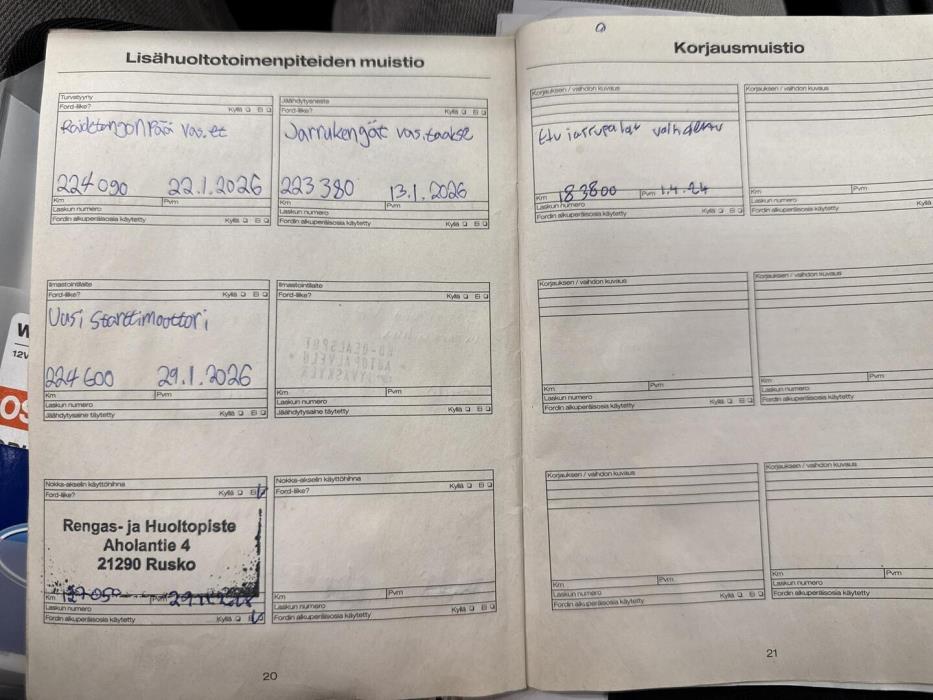 Lisähuoltotoimenpiteiden muistio
Turvatyyny
Ford-liike? Kyllä Ei
vas. et
224 090 22.1.2026
Km Pvm
Laskun numero
Fordin alkuperäisosia käytetty Kyllä Ei
Jäähdytysneste
Ford-liike? Kyllä Ei
Jarrukengät vas. taakse
223 380 13.1.2026
Km Pvm
Laskun numero
Fordin alkuperäisosia käytetty Kyllä Ei
Ilmastointilaite
Ford-liike? Kyllä Ei
Uusi starttimoottori
224 600 29.1.2026
Km Pvm
Laskun numero
Jäähdytysaine täytetty Kyllä Ei
Ilmastointilaite
Ford-liike? Kyllä Ei
Km Pvm
Laskun numero
Jäähdytysaine täytetty Kyllä Ei
Nokka-akselin käyttöhihna
Ford-liike? Kyllä Ei
Rengas- ja Huoltopiste
Aholantie 4
21290 Rusko
Km Pvm
Laskun numero
Fordin alkuperäisosia käytetty Kyllä Ei
Nokka-akselin käyttöhihna
Ford-liike? Kyllä Ei
Km Pvm
Laskun numero
Fordin alkuperäisosia käytetty Kyllä Ei
20
Korjausmuistio
Korjauksen / vaihdon kuvaus
Etu jarrupalat
Km 183800 Pvm 1.4.24
Laskun numero
Fordin alkuperäisosia käytetty Kyllä Ei
Korjauksen / vaihdon kuvaus
Km Pvm
Laskun numero
Fordin alkuperäisosia käytetty Kyllä
Korjauksen / vaihdon kuvaus
Km Pvm
Laskun numero
Fordin alkuperäisosia käytetty Kyllä Ei
Korjauksen / vaihdon kuvaus
Km Pvm
Laskun numero
Fordin alkuperäisosia käytetty Kyllä
Korjauksen / vaihdon kuvaus
Km Pvm
Laskun numero
Fordin alkuperäisosia käytetty Kyllä Ei
Korjauksen / vaihdon kuvaus
Km Pvm
Laskun numero
Fordin alkuperäisosia käytetty Kyllä
21
12V